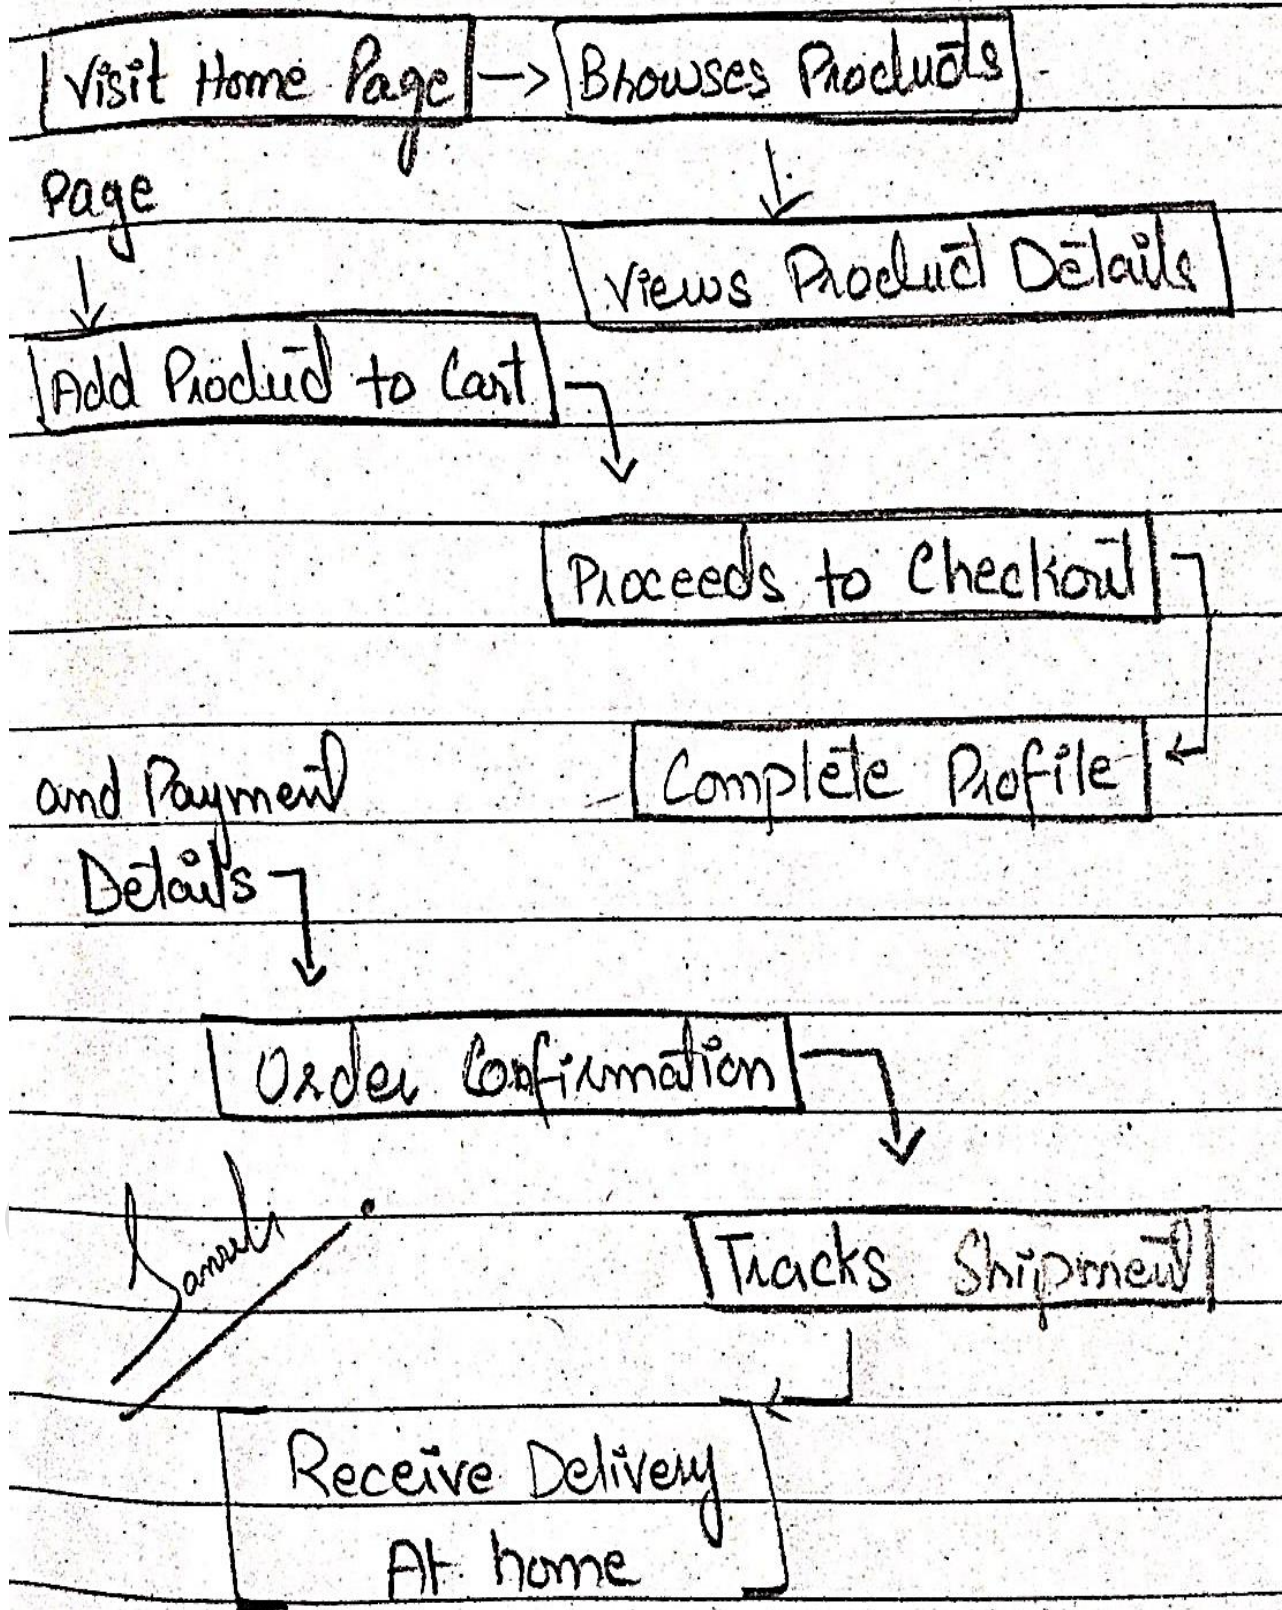 Visit Home Page → Browses Products
Views Product Details
Page
Add Product to Cart
Proceeds to Checkout
Complete Profile
and Payment
Details
Order Confirmation
Tracks Shipment
Receive Delivery
At home